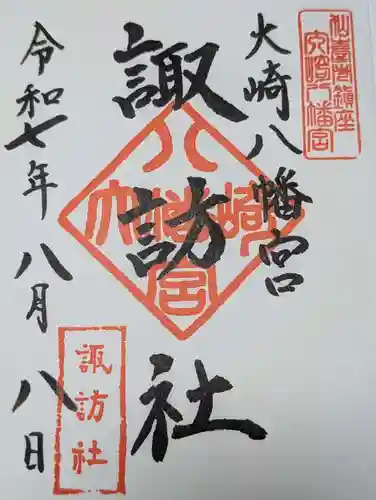 仙臺市鎮座
大崎八幡宮
大崎八幡宮
諏訪社
大崎八幡宮
令和七年八月八日
諏訪社